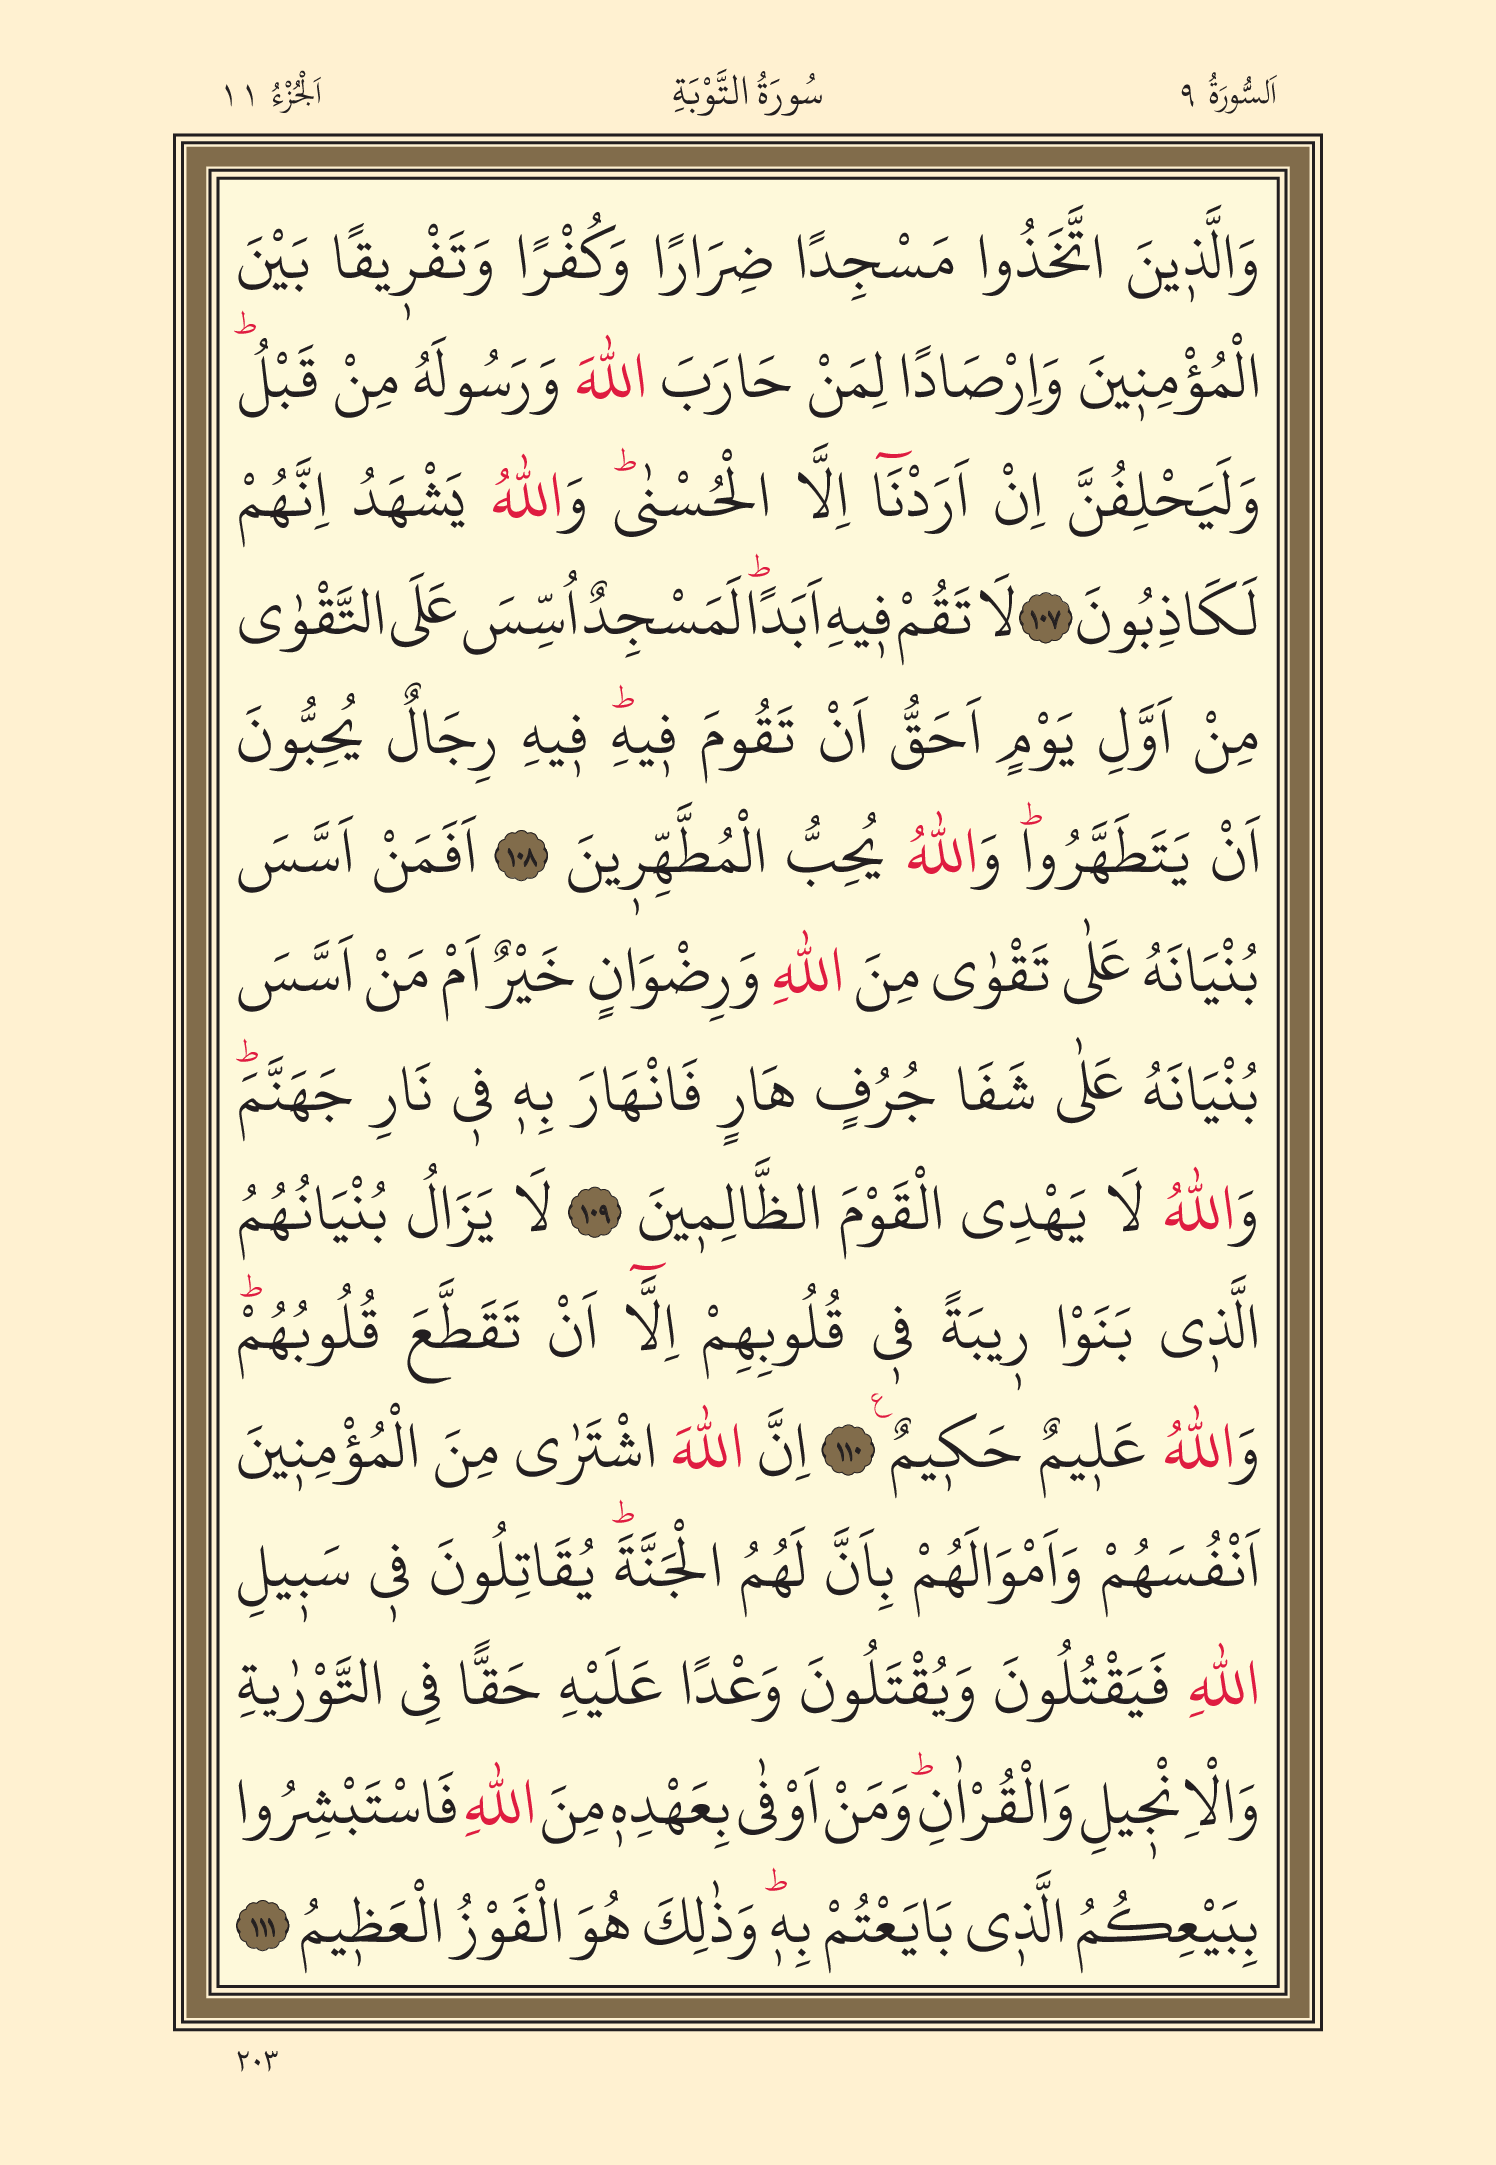 اَلسُّورَةُ ٩
سُورَةُ التَّوْبَةِ
اَلْجُزْءُ ١١
وَالَّذ۪ينَ اتَّخَذُوا مَسْجِدًا ضِرَارًا وَكُفْرًا وَتَفْر۪يقًا بَيْنَ
الْمُؤْمِن۪ينَ وَاِرْصَادًا لِمَنْ حَارَبَ اللّٰهَ وَرَسُولَهُ مِنْ قَبْلُۜ
وَلَيَحْلِفُنَّ اِنْ اَرَدْنَٓا اِلَّا الْحُسْنٰىۜ وَاللّٰهُ يَشْهَدُ اِنَّهُمْ
لَكَاذِبُونَ ﴿١٠٧﴾ لَا تَقُمْ ف۪يهِ اَبَدًاۜ لَمَسْجِدٌ اُسِّسَ عَلَى التَّقْوٰى
مِنْ اَوَّلِ يَوْمٍ اَحَقُّ اَنْ تَقُومَ ف۪يهِۜ ف۪يهِ رِجَالٌ يُحِبُّونَ
اَنْ يَتَطَهَّرُواۜ وَاللّٰهُ يُحِبُّ الْمُطَّهِّر۪ينَ ﴿١٠٨﴾ اَفَمَنْ اَسَّسَ
بُنْيَانَهُ عَلٰى تَقْوٰى مِنَ اللّٰهِ وَرِضْوَانٍ خَيْرٌ اَمْ مَنْ اَسَّسَ
بُنْيَانَهُ عَلٰى شَفَا جُرُفٍ هَارٍ فَانْهَارَ بِه۪ ف۪ى نَارِ جَهَنَّمَۜ
وَاللّٰهُ لَا يَهْدِى الْقَوْمَ الظَّالِم۪ينَ ﴿١٠٩﴾ لَا يَزَالُ بُنْيَانُهُمُ
الَّذ۪ى بَنَوْا ر۪يبَةً ف۪ى قُلُوبِهِمْ اِلَّٓا اَنْ تَقَطَّعَ قُلُوبُهُمْۜ
وَاللّٰهُ عَل۪يمٌ حَك۪يمٌ۟ ﴿١١٠﴾ اِنَّ اللّٰهَ اشْتَرٰى مِنَ الْمُؤْمِن۪ينَ
اَنْفُسَهُمْ وَاَمْوَالَهُمْ بِاَنَّ لَهُمُ الْجَنَّةَۜ يُقَاتِلُونَ ف۪ى سَب۪يلِ
اللّٰهِ فَيَقْتُلُونَ وَيُقْتَلُونَ وَعْدًا عَلَيْهِ حَقًّا فِى التَّوْرٰيةِ
وَالْاِنْج۪يلِ وَالْقُرْاٰنِۜ وَمَنْ اَوْفٰى بِعَهْدِه۪ مِنَ اللّٰهِ فَاسْتَبْشِرُوا
بِبَيْعِكُمُ الَّذ۪ى بَايَعْتُمْ بِه۪ۜ وَذٰلِكَ هُوَ الْفَوْزُ الْعَظ۪يمُ ﴿١١١﴾
٢٠٣